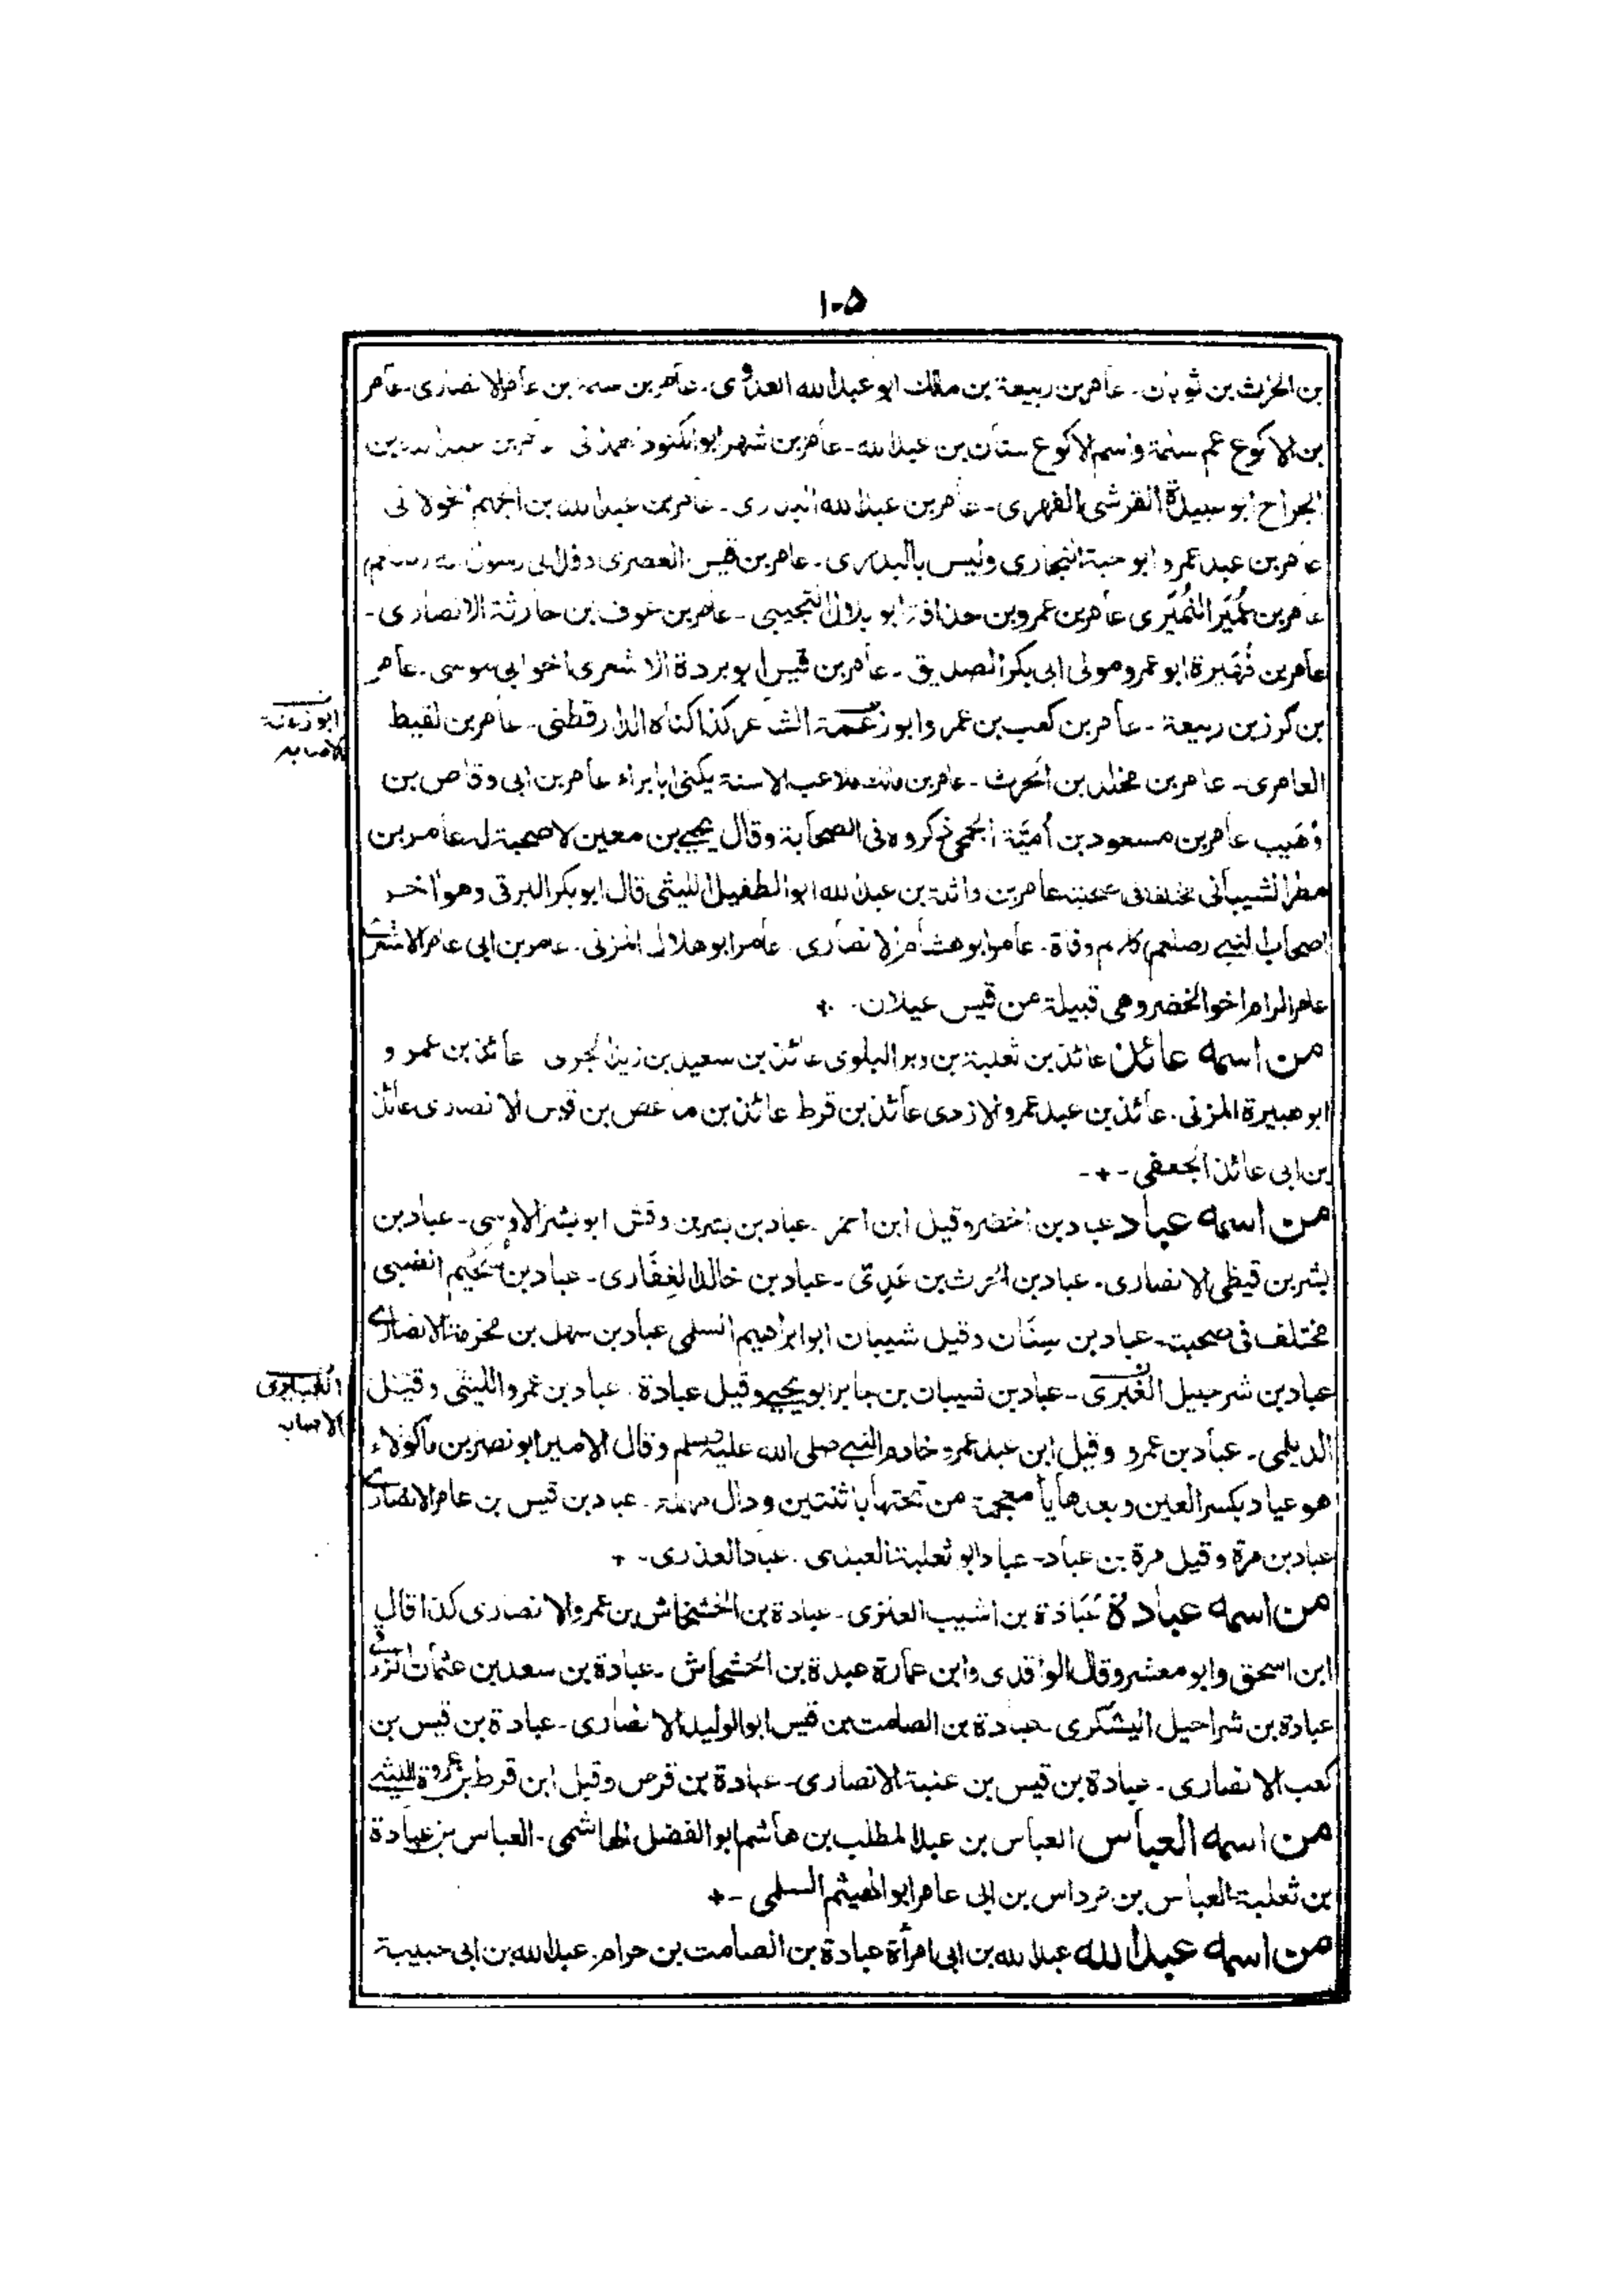 ١٠٥
بن الحرث بن ثوبان ـ عامر بن ربيعة بن ملك ابو عبد الله العدوى ـ عامر بن سلمة بن عامر الانصارى ـ عامر
بن الاكوع عم سلمة واسم الاكوع سنان بن عبد الله ـ عامر بن شهر ابو الكنود الهمدانى عامر بن عبد الله بن
الجراح ابو عبيدة القرشى الفهرى ـ عامر بن عبد الله البدرى ـ عامر بن عبد الله بن الجهم الخولانى
عامر بن عبد عمرو ابو حبة النجارى وليس بالبدرى ـ عامر بن قيس العصرى
عامر بن عُمَير النُمَيرى عامر بن عمرو بن حذافة ابو بلال التجيبى ـ عامر بن عوف بن حارثة الانصارى ـ
عامر بن فُهَيرة ابو عمرو مولى ابى بكر الصديق ـ عامر بن قيس ابو بردة الاشعرى اخو ابى موسى ـ عامر
بن كرز بن ربيعة ـ عامر بن كعب بن عمرو ابو زعمة الشاعر كذا كناه الدارقطنى ـ عامر بن لقيط
ابو زعنة
الاصابه
العامرى ـ عامر بن مخلد بن الحرث ـ عامر بن مالك ملاعب الاسنة يكنى ابا براء عامر بن ابى وقاص بن
وُهَيب عامر بن مسعود بن اُميّة الجمحى ذكروه فى الصحابة وقال يحيى بن معين لا صحبة له عامر بن
مطر الشيبانى مختلف فى صحبته عامر بن واثلة بن عبد الله ابو الطفيل الليثى قال ابو بكر البرقى وهو اخر
اصحاب النبى صلعم كلهم وفاة ـ عامر ابو هشام الانصارى ـ عامر ابو هلال المزنى ـ عامر بن ابى عامر الاشعرى
عامر الرام اخو الخضر وهى قبيلة من قيس عيلان ـ +
من اسمه عائذ عائذ بن ثعلبة بن وبر البلوى عائذ بن سعيد بن زيد الجرى عائذ بن عمرو
ابو هبيرة المزنى ـ عائذ بن عبد عمرو الازدى عائذ بن قرط عائذ بن ماعص بن قيس الانصارى عائذ
بن ابى عائذ الجعفى ـ + ـ
من اسمه عباد عباد بن اخضر وقيل ابن احمر ـ عباد بن بشر بن وقش ابو بشر الاوسى ـ عباد بن
بشر بن قيظى الانصارى ـ عباد بن الحرث بن عَدِىّ ـ عباد بن خالد الغِفَارى ـ عباد بن سُحَيم الضبى
مختلف فى صحبته ـ عباد بن سِنَان وقيل شيبان ابو ابراهيم السلمى عباد بن سهل بن مخرمة الانصارى
عباد بن شرحبيل الغُبرى ـ عباد بن شيبان بن جابر ابو يحيى وقيل عبادة ـ عباد بن عمرو الليثى وقيل
الاصاب
الديلمى ـ عباد بن عمرو وقيل ابن عبد عمرو خادم النبى صلى الله عليه وسلم وقال الامير ابو نصر بن ماكولاء
هو عياد بكسر العين وبعدها يا معجمة من تحتها باثنتين ودال مهملة ـ عباد بن قيس بن عامر الانصارى
عباد بن مرة وقيل مرة بن عباد ـ عباد ابو ثعلبة العبدى ـ عباد العذرى ـ +
من اسمه عبادة عبادة بن اشيب العنزى ـ عبادة بن الخشخاش بن عمرو الانصارى كذا قال
ابن اسحق وابو معشر وقال الواقدى وابن عمارة عبدة بن الحشحاش ـ عبادة بن سعد بن عثمان الزرقى
عبادة بن شراحيل اليشكرى عبادة بن الصامت بن قيس ابو الوليد الانصارى ـ عبادة بن قيس بن
كعب الانصارى ـ عبادة بن قيس بن عنبة الانصارى ـ عبادة بن قرص وقيل ابن قرط بن عروة الليثى
من اسمه العباس العباس بن عبد المطلب بن هاشم ابو الفضل الهاشمى ـ العباس بن عبادة
بن ثعلبة العباس بن مرداس بن ابى عامر ابو الهيثم السلمى ـ +
من اسمه عبد الله عبد الله بن ابى امرأة عبادة بن الصامت بن حرام ـ عبد الله بن ابى حبيبة